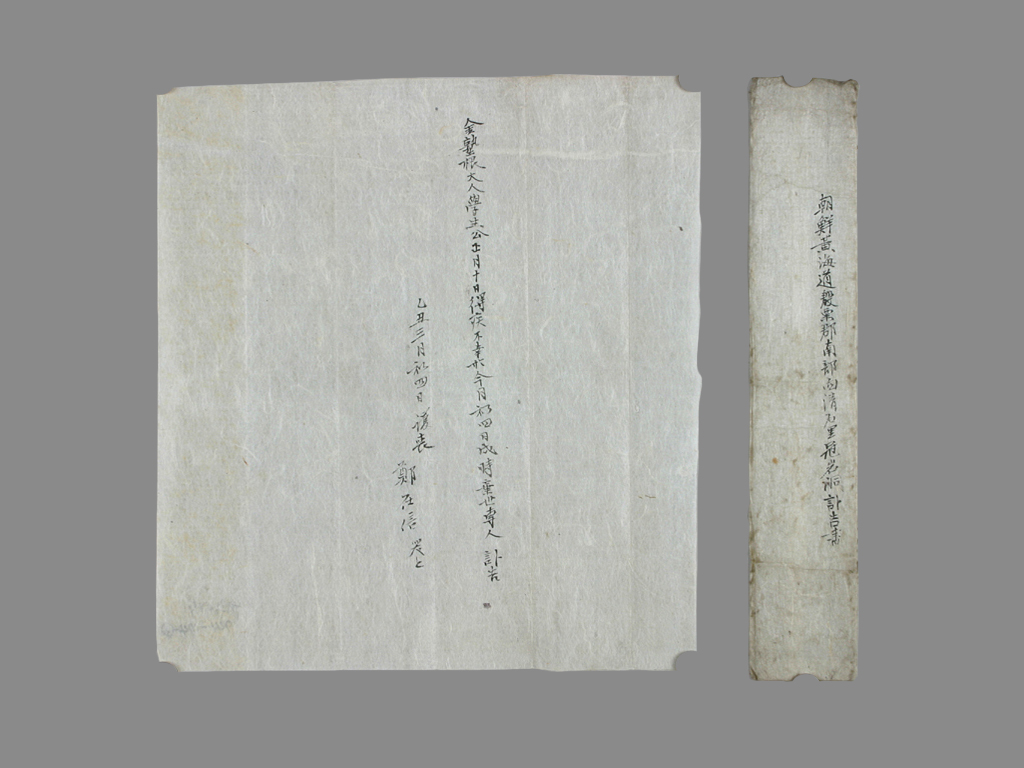 朝鮮黃海道殷栗郡南部面 里 訃告書
金塾 大人學生公正月十日得疾不幸於今月初四日戌時棄世專人 訃告
乙丑三月初四日 護喪 鄭在信